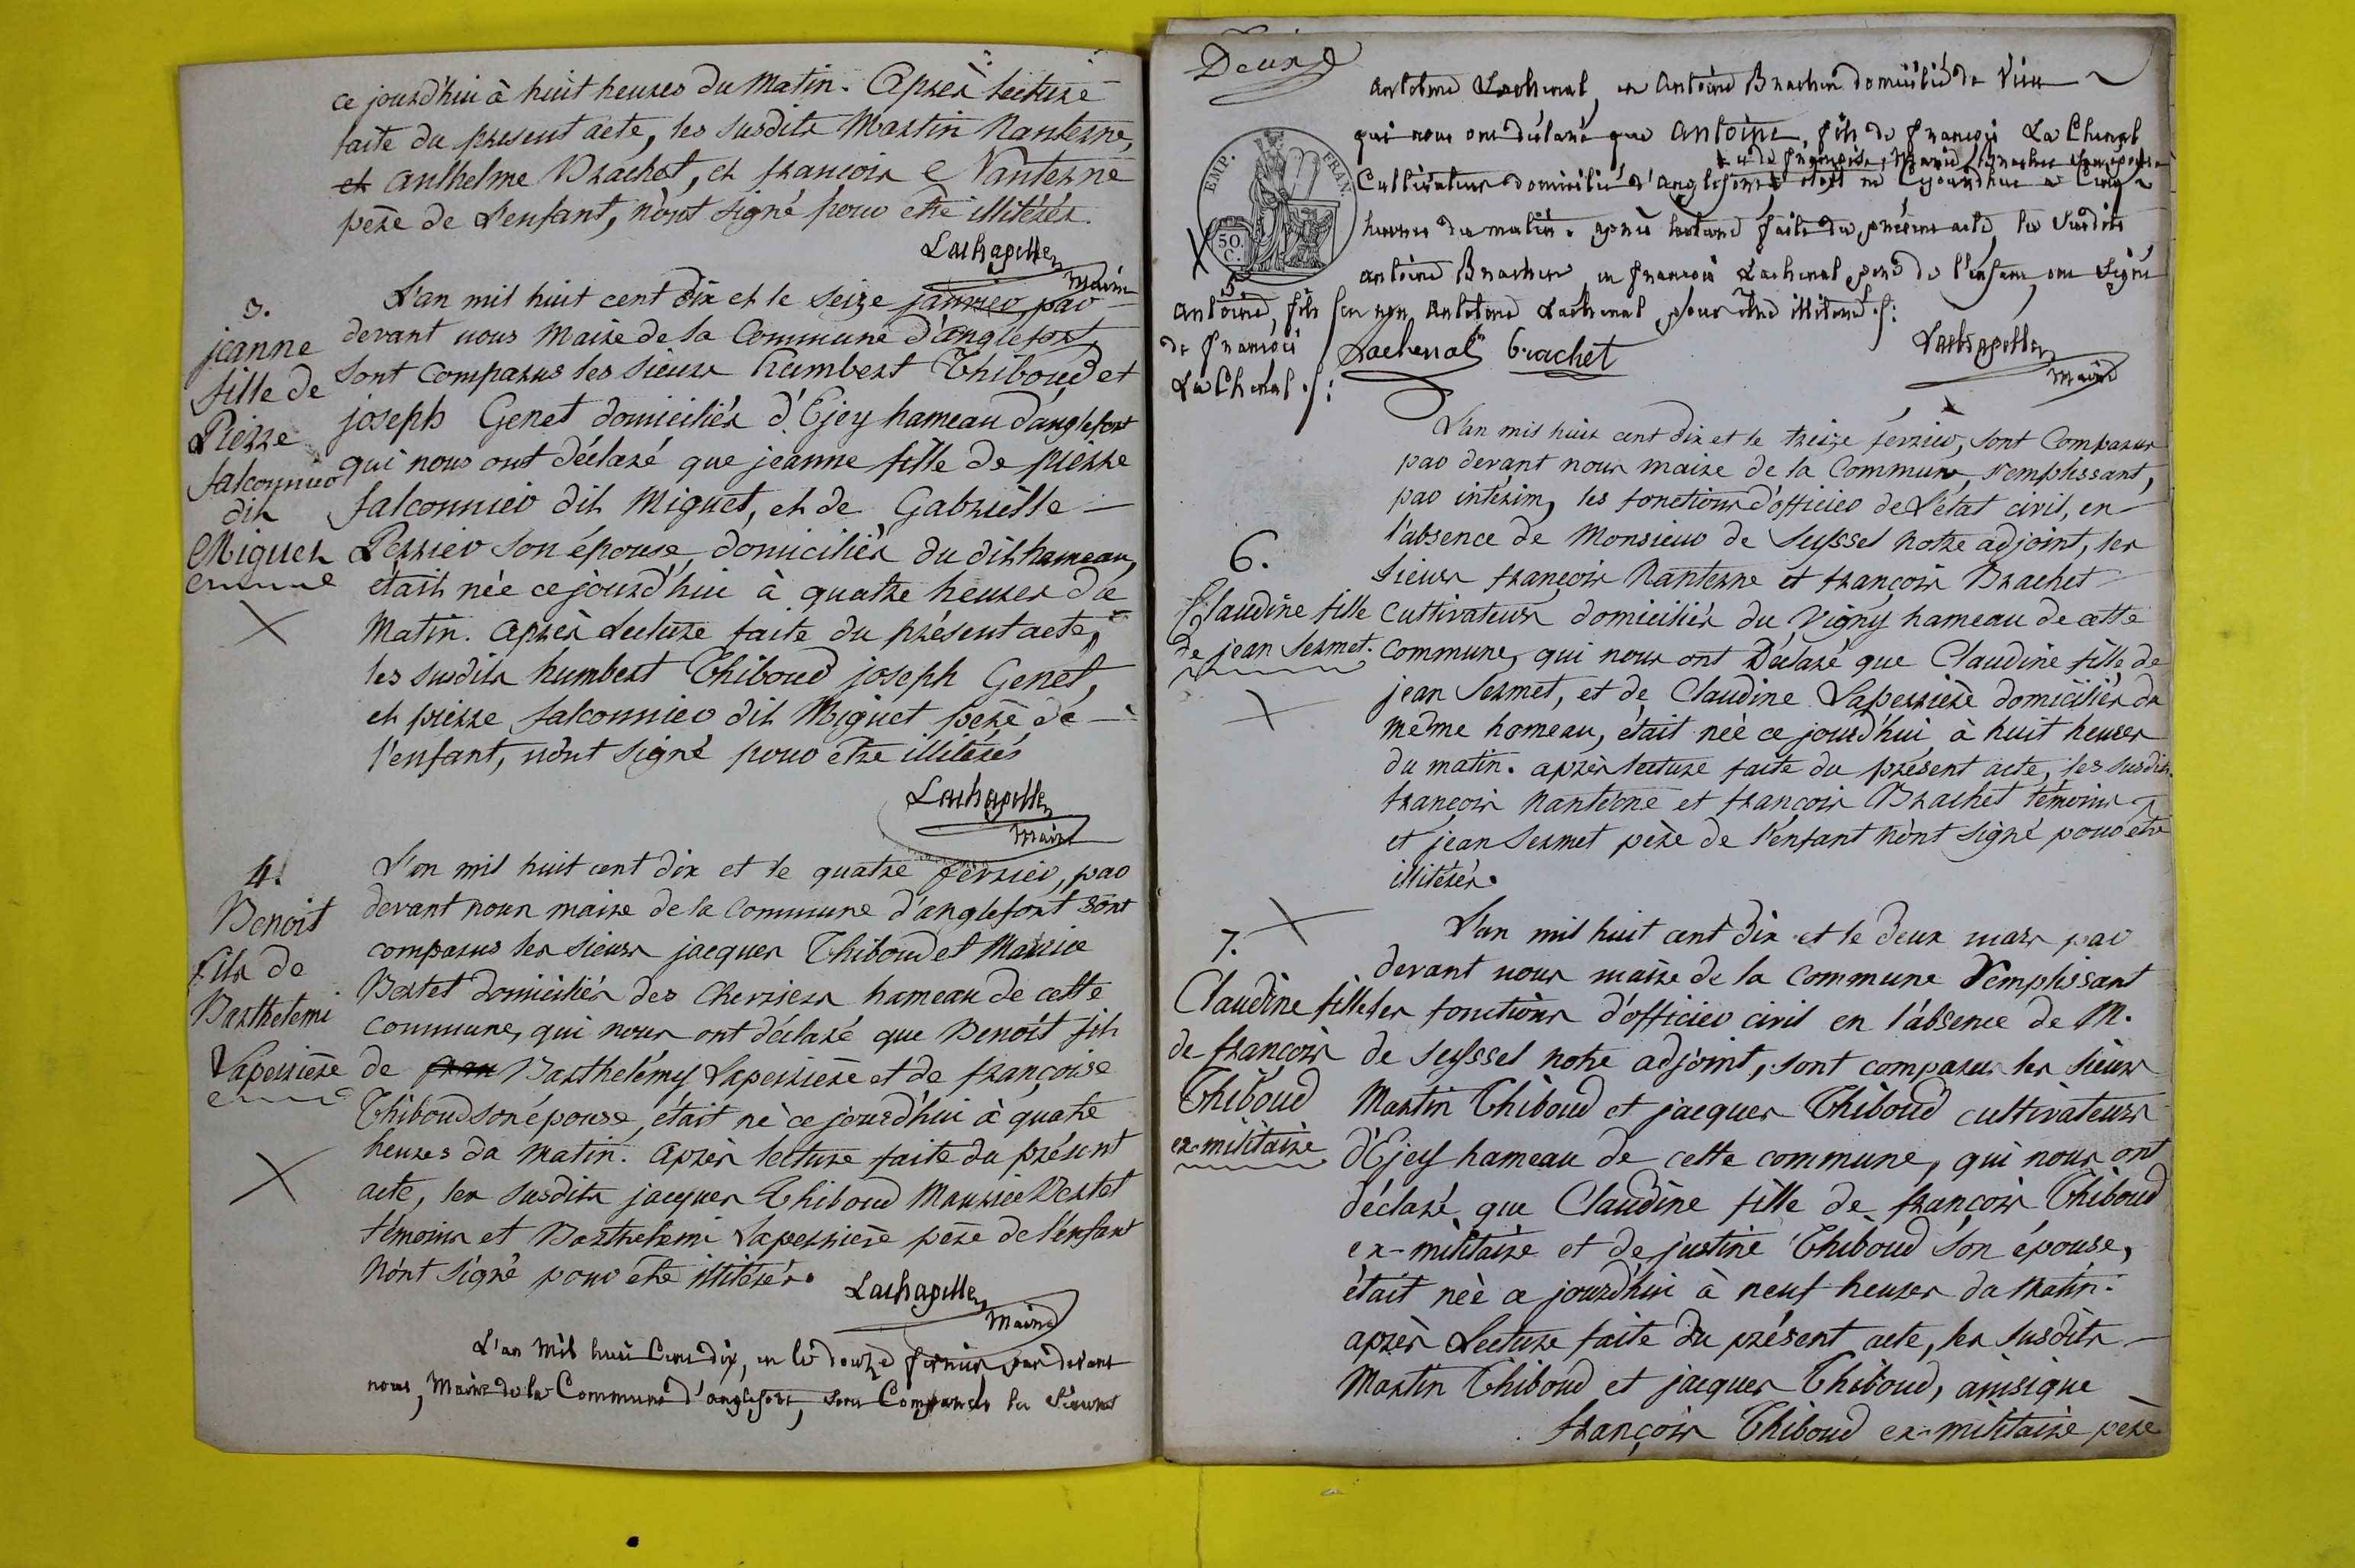 ce jourd'hui à huit heures du Matin. Après lecture
faite du present acte, les susdits Martin Nanterne,
et anthelme Brachet, et françois Nanterne
père de l'enfant, n'ont signé pour etre illitérés.
Lachapelle
Maire
3.
jeanne
fille de
Pierre
falconnier
dit
Miguet
L'an mil huit cent dix et le seize janvier, par
devant nous Maire de la Commune d'anglefort,
sont comparus les sieurs humbert Thiboud et
joseph Genet domiciliés d'Ejey hameau d'anglefort
qui nous ont déclaré que jeanne fille de pierre
falconnier dit Miguet, et de Gabrielle
Perrier son épouse, domiciliés du dit hameau,
était née ce jourd'hui à quatre heures du
Matin. après lecture faite du présent acte,
les susdits humbert Thiboud joseph Genet,
et pierre falconnier dit Miguet père de
l'enfant, n'ont signé pour être illitérés
Lachapelle
Maire
4.
Benoit
fils de
Barthelemi
Laperrière
L'an mil huit cent dix et le quatre fevrier, par
devant nous maire de la Commune d'anglefort sont
comparus les sieurs jacques Thiboud et Maurice
Bertet domiciliés des Cherriers hameau de cette
commune, qui nous ont déclaré que Benoit fils
de Barthelémy Laperrière et de françoise
Thiboud son épouse, était né ce jourd'hui à quatre
heures du Matin. Après lecture faite du présent
acte, les susdits jacques Thiboud Maurice Bertet
témoins et Barthelemi Laperrière père de l'enfant
n'ont signé pour être illitérés.
Lachapelle
Maire
L'an mil huit Cent dix, et le douze fevrier, par devant
nous, Maire de la Commune d'anglefort, sont Comparus les Sieurs
Deux
Antelme Lachenal, et Antoine Brachet domiciliés de
qui nous ont déclaré que Antoine, fils de françois La Chenal
et de françoise, Marie Brachet son épouse
Cultivateur domicilié d'anglefort, était né Cejourdhui a Cinq
EMP. FRAN.
50. C.
heures du matin. après lecture faite du présent acte, les Susdits
antoine Brachet, et françois Lachenal père de l'enfant, ont Signé
5
Antoine, fils
de françois
La Chenal
non Antelme Lachenal pour être illitéré
Lachenal brachet
Lachapelle
Maire
L'an mil huit cent dix et le treize février, sont Comparus
par devant nous maire de la Commune, remplissant,
par intérim, les fonctions d'officier de L'état civil, en
l'absence de Monsieur de Seyssel notre adjoint, les
6.
Claudine fille
de jean Sermet.
Sieurs françois Nanterne et françois Brachet
Cultivateurs domiciliés du Vigny hameau de cette
Commune, qui nous ont Déclaré que Claudine fille de
jean Sermet, et de Claudine Laperrière domiciliés du
même hameau, était née ce jourd'hui à huit heures
du matin. après lecture faite du présent acte, les susdits
françois Nanterne et françois Brachet témoins
et jean Sermet père de l'enfant n'ont signé pour être
illitérés.
7.
Claudine fille
de françois
Thiboud
ex-militaire
L'an mil huit cent dix et le deux mars par
devant nous maire de la Commune Remplissant
les fonctions d'officier civil en l'absence de M.
de Seyssel notre adjoint, sont comparus les sieurs
Martin Thiboud et jacques Thiboud cultivateurs
d'Ejey hameau de cette commune, qui nous ont
déclaré que Claudine fille de françois Thiboud
ex-militaire et de justine Thiboud son épouse,
était née ce jourd'hui à neuf heures du Matin.
après Lecture faite du présent acte, les susdits
Martin Thiboud et jacques Thiboud, ainsique
françois Thiboud ex-militaire père